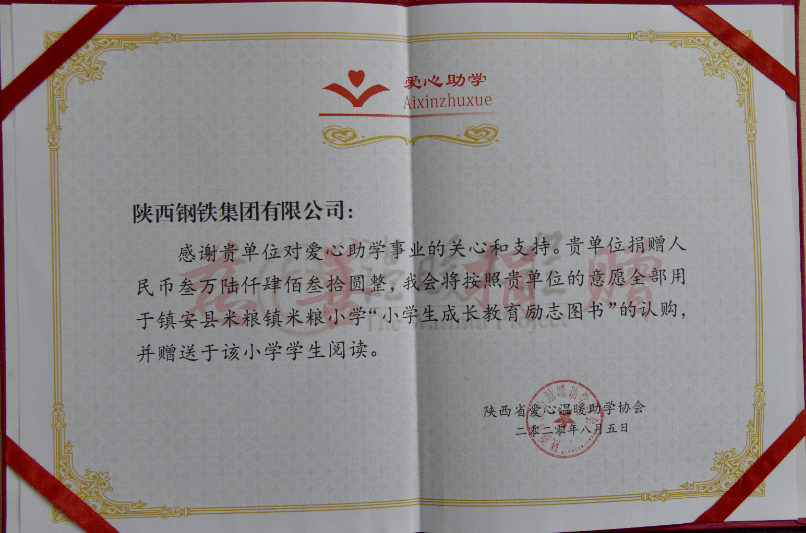 爱心助学
Aixinzhuxue
陕西钢铁集团有限公司：
感谢贵单位对爱心助学事业的关心和支持。贵单位捐赠人
民币叁万陆仟肆佰叁拾圆整，我会将按照贵单位的意愿全部用
于镇安县米粮镇米粮小学“小学生成长教育励志图书”的认购，
并赠送于该小学学生阅读。
陕西省爱心温暖助学协会
二零二零年八月五日